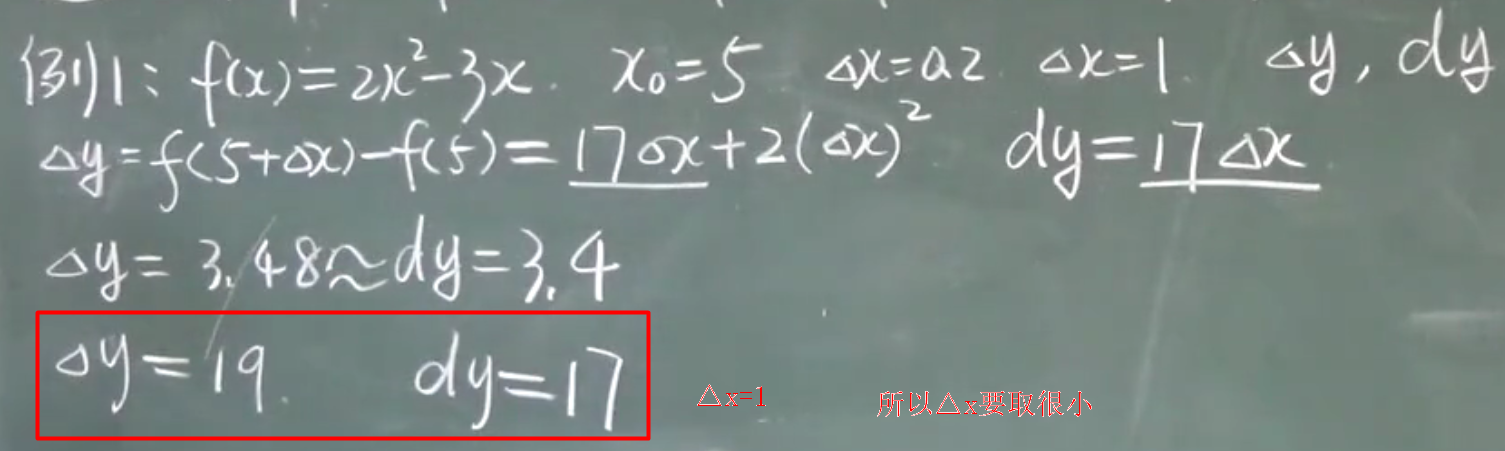 例1: f(x)=2x²-3x. x₀=5 △x=0.2 △x=1. △y, dy
△y=f(5+△x)-f(5)=17△x+2(△x)² dy=17△x
△y=3.48≈dy=3.4
△y=19. dy=17 △x=1 所以△x要取很小